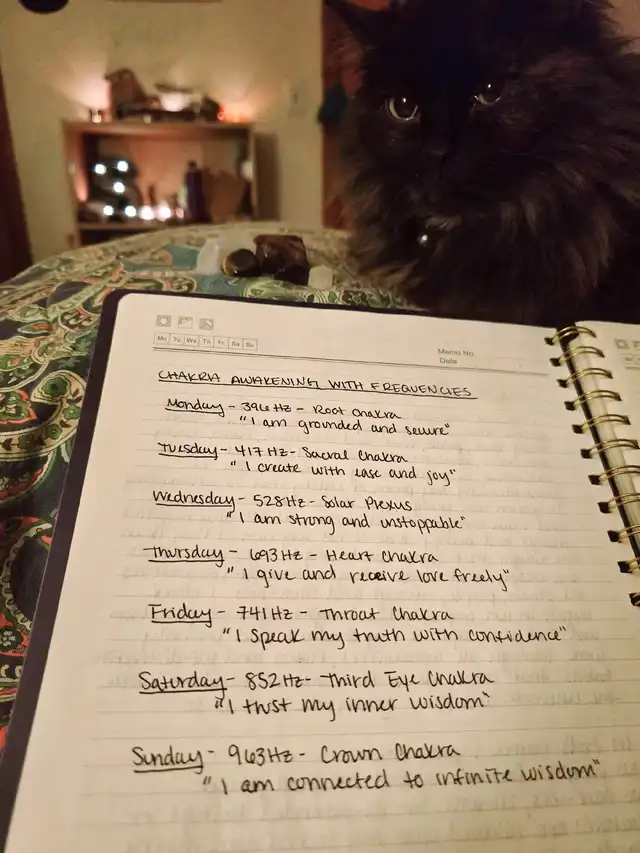 Mo Tu We Th Fr Sa Su
Memo No.
Date
CHAKRA AWAKENING WITH FREQUENCIES
Monday - 396 Hz - Root Chakra
"I am grounded and secure"
Tuesday - 417 Hz - Sacral Chakra
"I create with ease and joy"
Wednesday - 528 Hz - Solar Plexus
"I am strong and unstoppable"
Thursday - 693 Hz - Heart Chakra
"I give and receive love freely"
Friday - 741 Hz - Throat Chakra
"I speak my truth with confidence"
Saturday - 852 Hz - Third Eye Chakra
"I trust my inner wisdom"
Sunday - 963 Hz - Crown Chakra
"I am connected to infinite wisdom"